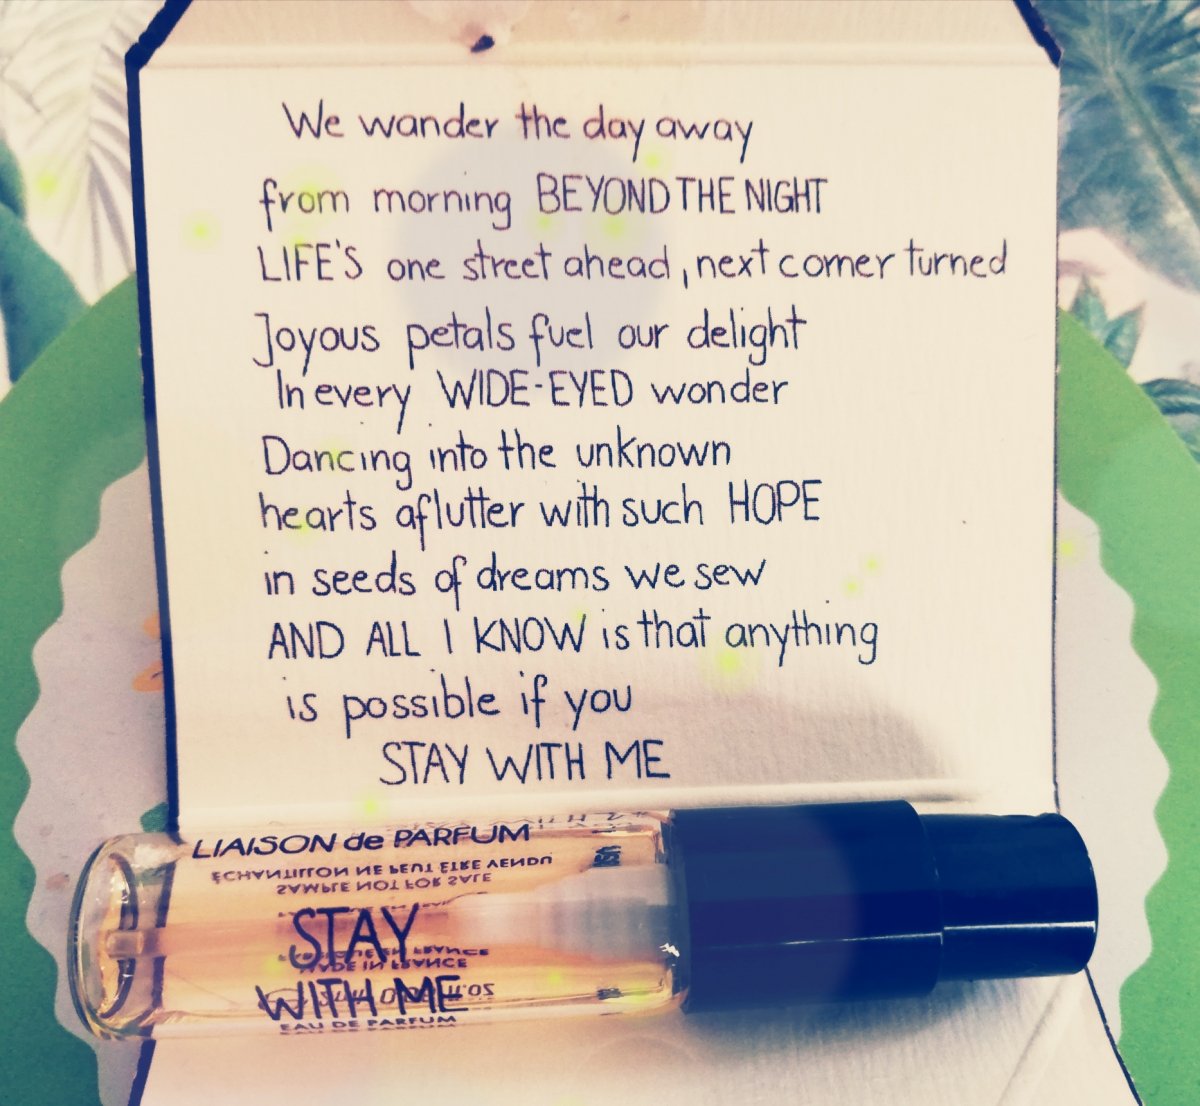 We wander the day away
from morning BEYOND THE NIGHT
LIFE'S one street ahead, next corner turned
Joyous petals fuel our delight
In every WIDE-EYED wonder
Dancing into the unknown
hearts aflutter with such HOPE
in seeds of dreams we sew
AND ALL I KNOW is that anything
is possible if you
STAY WITH ME
LIAISON de PARFUM
ECHANTILLON NE PEUT ETRE VENDU
SAMPLE NOT FOR SALE
STAY
MADE IN FRANCE
WITH ME
EAU DE PARFUM